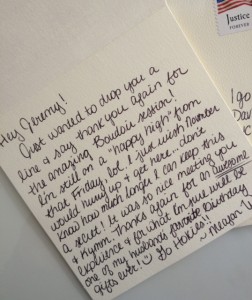 Justice
FOREVER
Hey Jeremy!
Just wanted to drop you a
line & say thank you again for
the amazing Boudoir session!
I'm still on a "happy high" from
that Friday, lol. I just wish December
would hurry up & get here...don't
know how much longer I can keep this
a secret! It was so nice meeting you
& Kymm. Thanks again for an awesome
experience & for what I'm sure will be
one of my husbands favorite Birthday
gifts ever! Go Hokies!!
~Megan